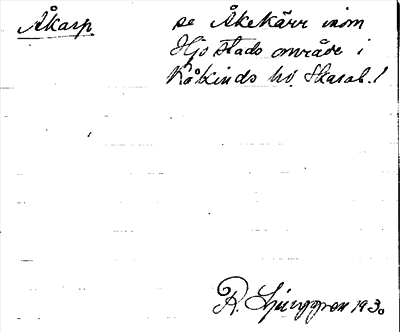 Åkarp
se Åkekärr inom
Hjo stads område i
Kåkinds hd. Skarab. l
R. Ljunggren 1930